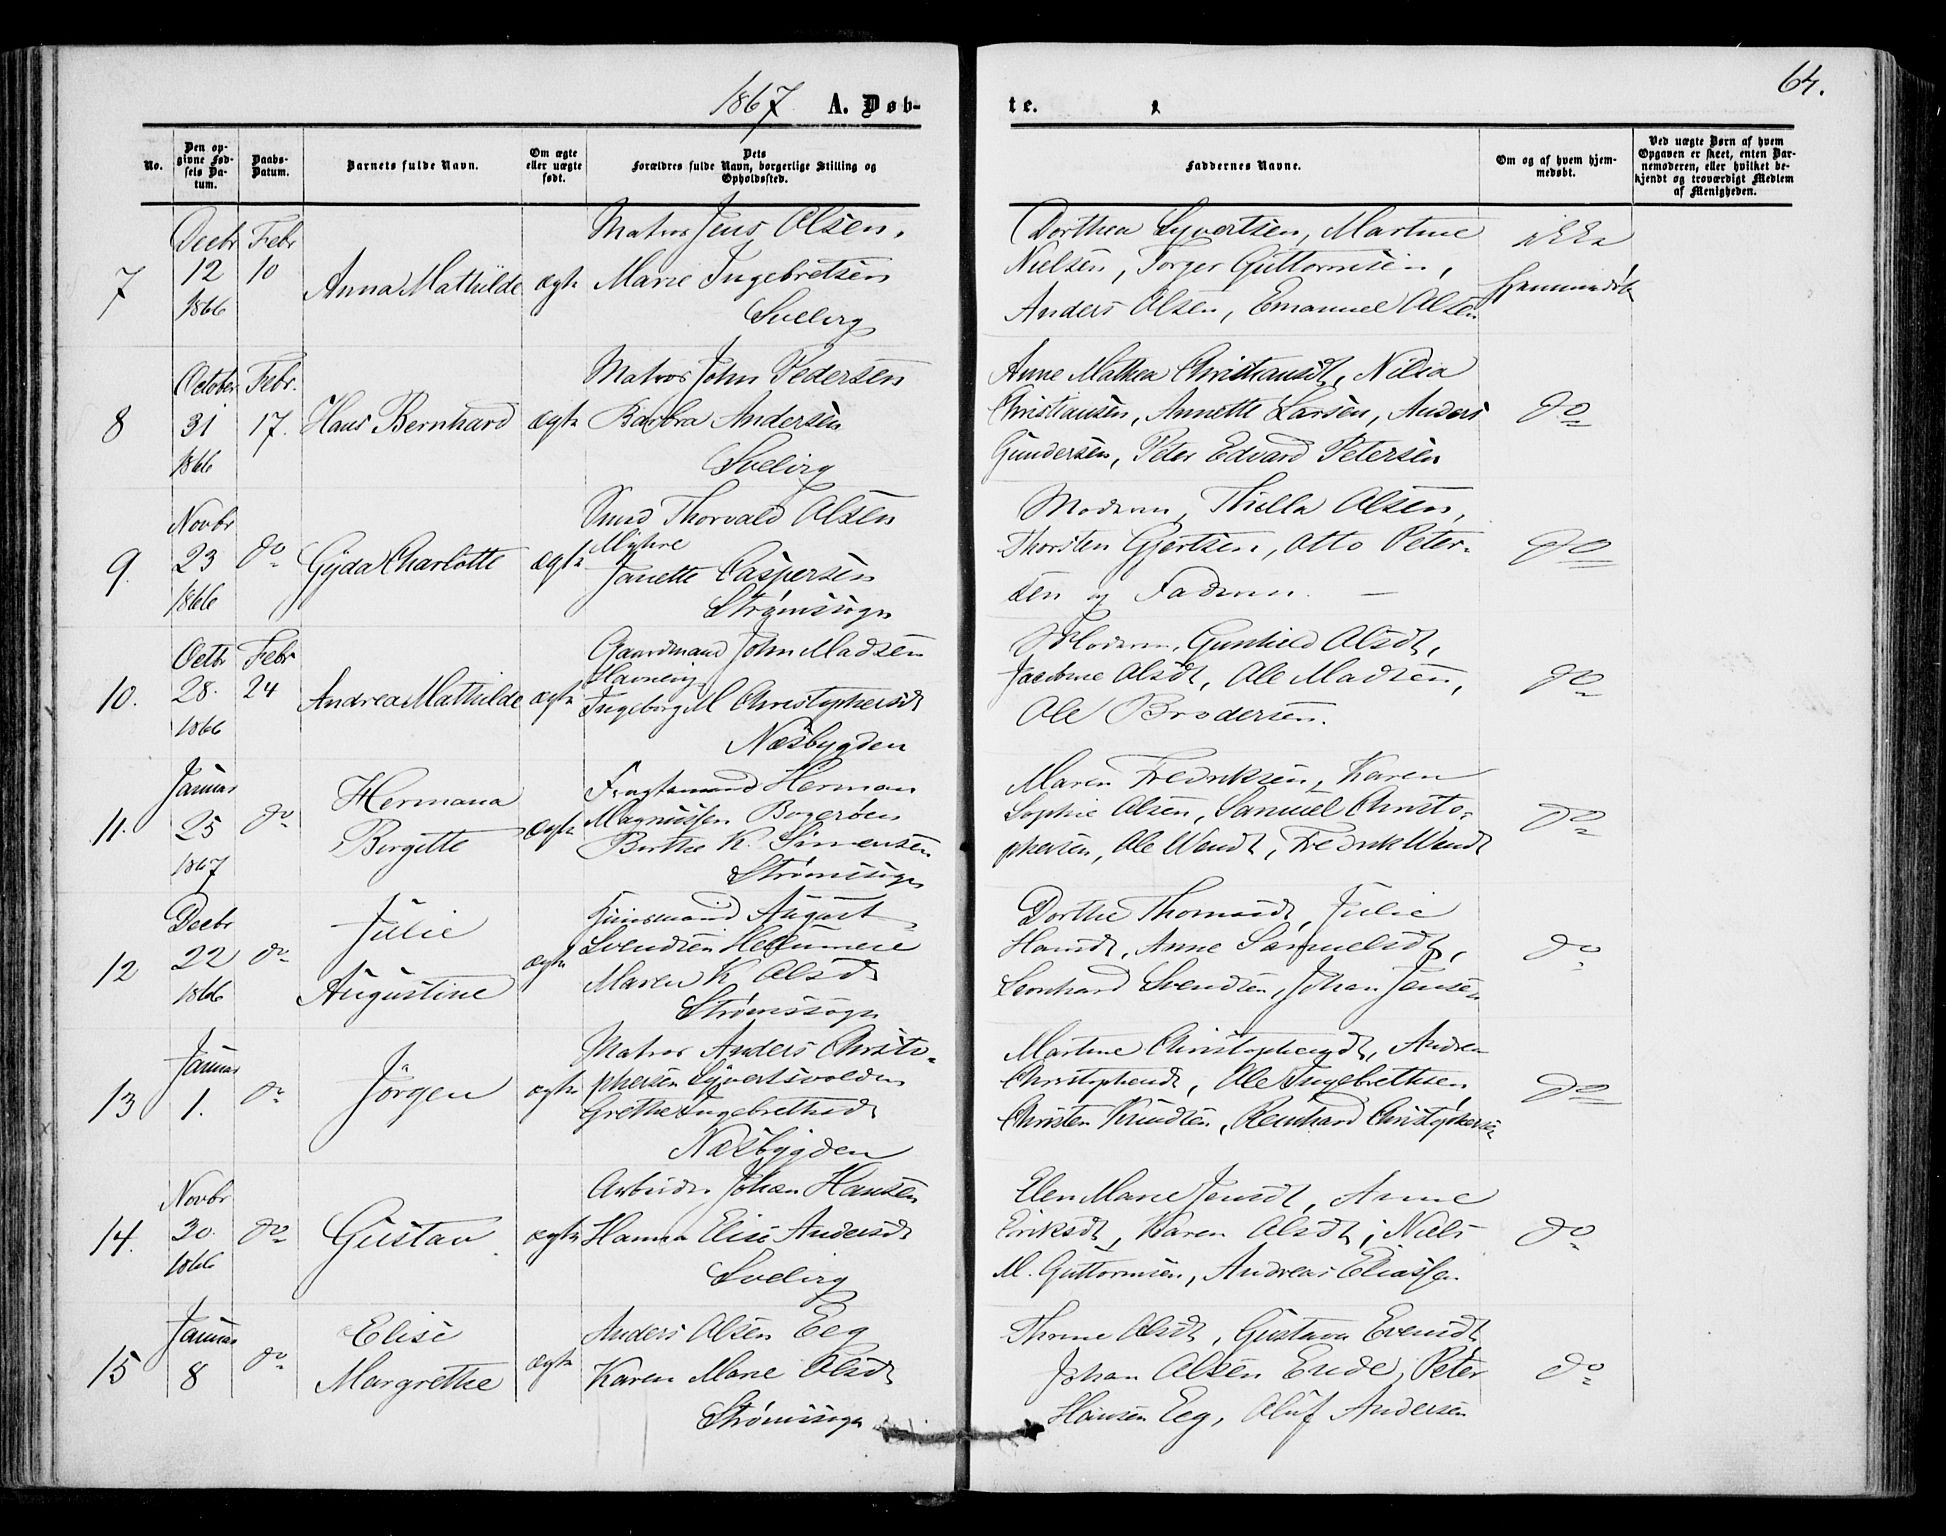 1867 A. Døb-
te.
64.
No.
Den op-
givne Fød-
sels Da-
tum.
Daabs-
Datum.
Barnets fulde Navn.
Om ægte
eller uægte
født.
Dets
Forældres fulde Navn, borgerlige Stilling og
Opholdssted.
Faddernes Navne.
Om og af hvem hjem-
medøbt.
Ved uægte Børn af hvem
Opgaven er skeet, enten Bar-
nemoderen, eller hvilket be-
kjendt og troværdigt Medlem
af Menigheden.
7
Decbr
12
1866
Febr
10
Anna Mathilde
ægte
Matros Jens Olsen,
Marie Ingebretsen
Svelvig
Dorthea Syvertsen, Martine
Nielsen, Torger Guttormsen,
Anders Olsen, Emanuel Olsen
ikke
hjemmedøbt
8
October
31
1866
Febr.
17.
Hans Bernhard
ægte
Matros John Pedersen
Barbra Andersen
Svelvig
Anne Mathea Christiansdt, Nilia
Christiansen, Annette Larsen, Anders
Gundersen, Peter Edvard Petersen
do
9.
Novbr
23
1866
do
Gyda Charlotte
ægte
Smed Thorvald Olsen
Myhre
Janette Caspersen
Strømssogn
Moderen, Thella Olsen,
Thorsten Gjertsen, Otto Peter-
sen og Faderen.
do
10.
Octbr
28.
1866
Febr
24
Andrea Mathilde
ægte
Gaardmand John Madsen
Havnevig
Ingeborg M Christophersdt
Næsbygden
Moderen, Gunhild Olsdt,
Jacobine Olsdt, Ole Madsen,
Ole Brodersen.
do
11.
Januar
25
1867
do
Hermana
Birgitte
ægte
Fragtemand Herman
Magnussen Bogerøen
Berthe K. Simensen
Strømssogn
Maren Fredriksen, Karen
Sophie Olsen, Samuel Christo-
phersen, Ole Wendt, Fredrik Wendt
do
12
Decbr
22
1866
do
Julie
Augustine
ægte
Huusmand August
Svendsen Hellumeie
Maren K Olsdt
Strømssogn
Dorthe Thomasdt, Julie
Hansdt, Anne Samuelsdt,
Leonhard Svendsen, Johan Jensen
do
13
Januar
1.
do
Jörgen
ægte
Matros Anders Christo-
phersen Syvertsvolden
Grethe Ingebrethsdt
Næsbygden
Martine Christophersdt, Andrea
Christophersdt, Ole Ingebrethsen
Christen Knudsen, Reinhard Christophersen
do
14.
Novbr
30.
1866
do
Gustav
ægte
Arbeider Johan Hansen
Hanna Elise Andersdt
Svelvig
Elen Marie Jensdt, Anne
Eriksdt, Karen Olsdt, Niels
M. Guttormsen, Andreas Eliassen
do
15
Januar
8
do
Elise
Margrethe
ægte
Anders Olsen Eeg
Karen Marie Olsdt
Strømssogn
Thrine Olsdt, Gustava Evensdt,
Johan Olsen Ende, Peter
Hansen Eeg, Oluf Andersen
do